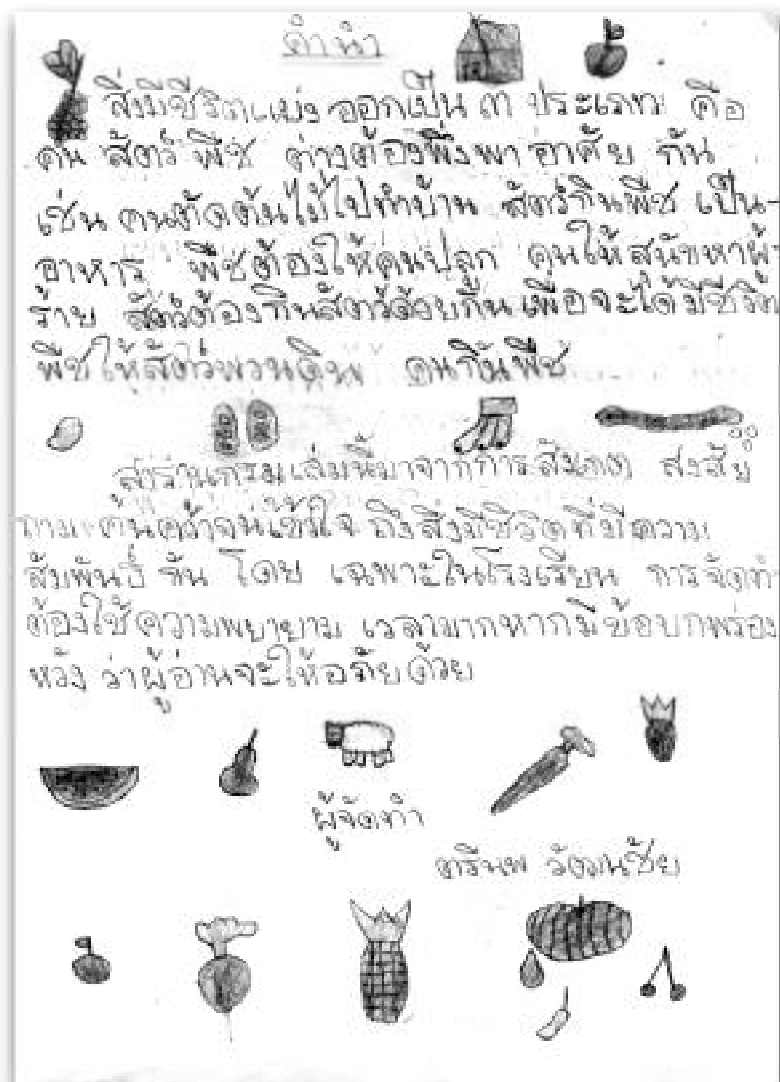 คำนำ
สิ่งมีชีวิตแบ่ง ออกเป็น ๓ ประเภท คือ
คน สัตว์ พืช ต่างต้องพึ่งพา อาศัย กัน
เช่น คนตัดต้นไม้ไปทำบ้าน สัตว์กินพืช เป็น-
อาหาร พืชต้องให้คนปลูก คนให้สุนัขหาผู้-
ร้าย สัตว์ต้องกินสัตว์ด้วยกัน เพื่อจะได้มีชีวิต
พืชให้สัตว์พรวนดิน คนกินพืช
สารานุกรมเล่มนี้มาจากการสังเกต สงสัย
ถาม ค้นคว้าจนเข้าใจ ถึงสิ่งมีชีวิตที่มีความ
สัมพันธ์ กัน โดย เฉพาะในโรงเรียน การจัดทำ
ต้องใช้ความพยายาม เวลามากหากมีข้อบกพร่อง
หวัง ว่าผู้อ่านจะให้อภัยด้วย
ผู้จัดทำ